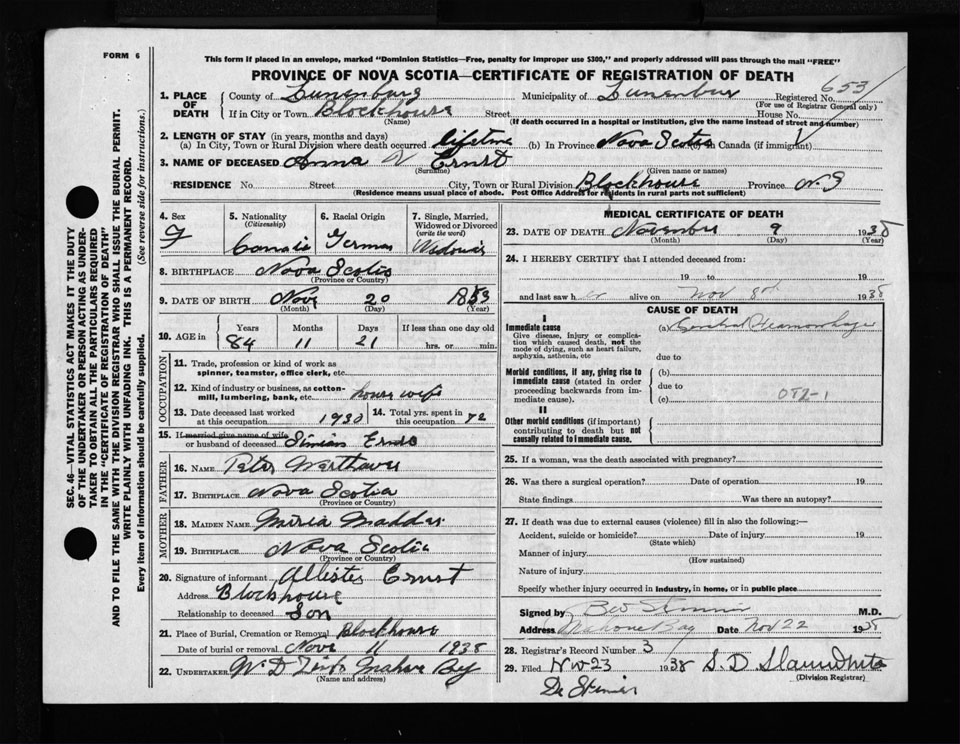 FORM 6
This form if placed in an envelope, marked "Dominion Statistics—Free, penalty for improper use $300," and properly addressed will pass through the mail "FREE"
PROVINCE OF NOVA SCOTIA—CERTIFICATE OF REGISTRATION OF DEATH
653
1. PLACE OF DEATH
County of Lunenburg Municipality of Lunenburg Registered No.
(For use of Registrar General only)
If in City or Town Blockhouse Street House No.
(Name) (If death occurred in a hospital or institution, give the name instead of street and number)
2. LENGTH OF STAY (in years, months and days)
(a) In City, Town or Rural Division where death occurred lifetime (b) In Province Nova Scotia (c) in Canada (if immigrant)
3. NAME OF DECEASED Anna V Ernst
(Surname) (Given name or names)
RESIDENCE No. Street City, Town or Rural Division Blockhouse Province N.S
(Residence means usual place of abode. Post Office Address for residents in rural parts not sufficient)
4. Sex
5. Nationality (Citizenship) Canada
6. Racial Origin German
7. Single, Married, Widowed or Divorced (write the word)
8. BIRTHPLACE Nova Scotia
(Province or Country)
9. DATE OF BIRTH Nov 20 1853
(Month) (Day) (Year)
10. AGE in Years Months Days If less than one day old
84 11 21 hrs. or min.
OCCUPATION
11. Trade, profession or kind of work as spinner, teamster, office clerk, etc.
12. Kind of industry or business, as cotton-mill, lumbering, bank, etc. house wife
13. Date deceased last worked at this occupation 1930
14. Total yrs. spent in this occupation 72
15. If married give name of wife or husband of deceased Simian Ernst
FATHER
16. NAME Peter
17. BIRTHPLACE Nova Scotia
(Province or Country)
MOTHER
18. MAIDEN NAME Maria
19. BIRTHPLACE Nova Scotia
(Province or Country)
20. Signature of informant Allister Ernst
Address Blockhouse
Relationship to deceased Son
21. Place of Burial, Cremation or Removal Blockhouse
Date of burial or removal Nov 11 1938
22. UNDERTAKER W D Mahone Bay
(Name and address)
MEDICAL CERTIFICATE OF DEATH
23. DATE OF DEATH November 9 1938
(Month) (Day) (Year)
24. I HEREBY CERTIFY that I attended deceased from:
19 to 19
and last saw her alive on Nov 8th 1938
CAUSE OF DEATH
I
Immediate cause (a) Cerebral Heamorrhage
Give disease, injury or complication which caused death, not the mode of dying, such as heart failure, asphyxia, asthenia, etc
due to
Morbid conditions, if any, giving rise to immediate cause (stated in order proceeding backwards from immediate cause).
(b)
due to
(c)
II
Other morbid conditions (if important) contributing to death but not causally related to immediate cause.
25. If a woman, was the death associated with pregnancy?
26. Was there a surgical operation? Date of operation 19
State findings Was there an autopsy?
27. If death was due to external causes (violence) fill in also the following:—
Accident, suicide or homicide? Date of injury 19
(State which)
Manner of injury
(How sustained)
Nature of injury
Specify whether injury occurred in industry, in home, or in public place
Signed by M.D.
Address Mahone Bay Date Nov 22 1938
28. Registrar's Record Number 3
29. Filed Nov 23 1938 S. D.
(Division Registrar)
SEC. 46—VITAL STATISTICS ACT MAKES IT THE DUTY
OF THE UNDERTAKER OR PERSON ACTING AS UNDER-
TAKER TO OBTAIN ALL THE PARTICULARS REQUIRED
IN THE "CERTIFICATE OF REGISTRATION OF DEATH"
AND TO FILE THE SAME WITH THE DIVISION REGISTRAR WHO SHALL ISSUE THE BURIAL PERMIT.
WRITE PLAINLY WITH UNFADING INK. THIS IS A PERMANENT RECORD.
Every item of information should be carefully supplied. (See reverse side for instructions.)